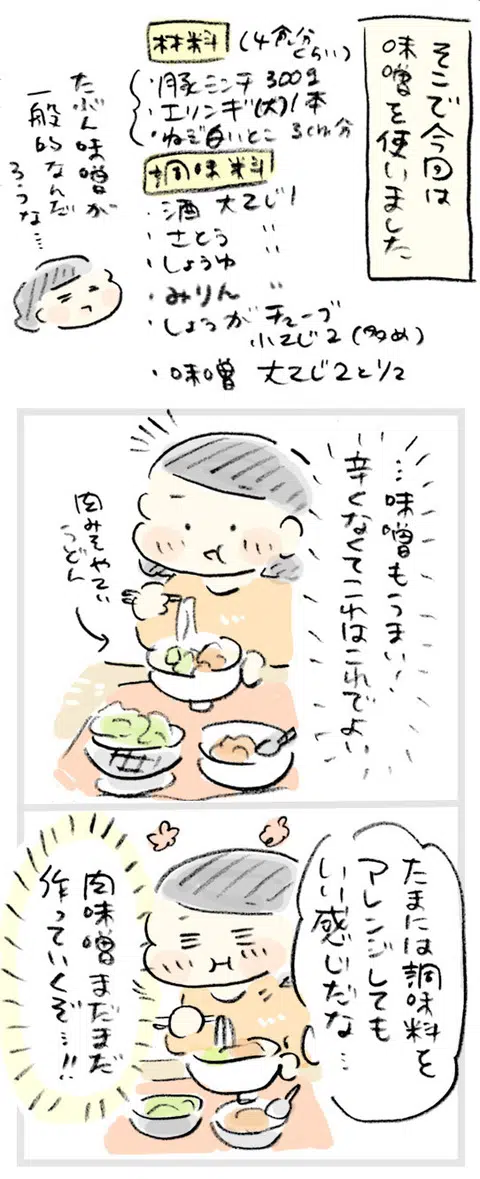 そこで今回は
味噌を使いました
材料 (4食分くらい)
・豚ミンチ 300g
・エリンギ(大)1本
・ねぎ白いとこ 3cm分
調味料
・酒 大さじ1
・さとう 〃
・しょうゆ 〃
・みりん 〃
・しょうがチューブ
小さじ2(多め)
・味噌 大さじ2と1/2
たぶん味噌が
一般的なんだ
ろうな…
…味噌もうまい!
辛くなくてこれはこれでよい
肉みそやさい
うどん
たまには調味料を
アレンジしても
いい感じだな…
肉味噌まだまだ
作っていくぞ…!!